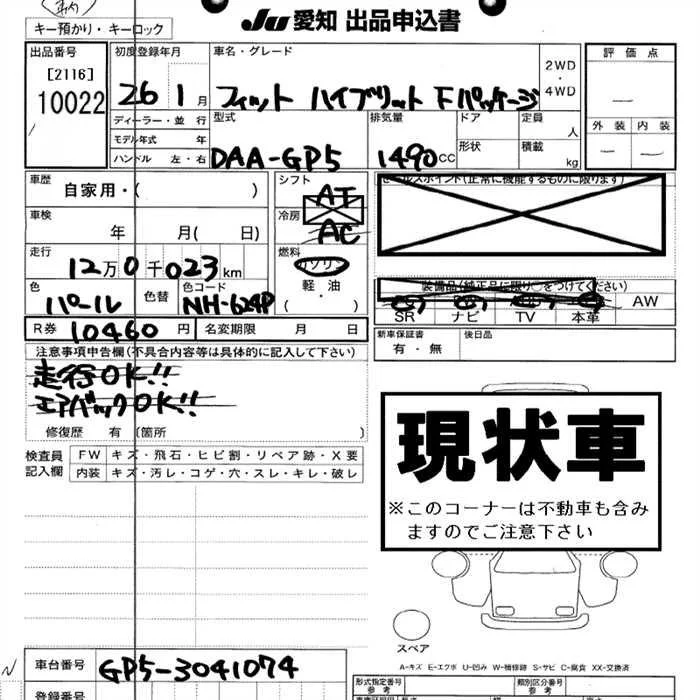 車内
キー預かり・キーロック
JU 愛知 出品申込書
出品番号
[2116]
10022
初度登録年月
26 1 月
車名・グレード
フィット ハイブリット Fパッケージ
2WD
・
4WD
評価点
—
外装 内装
— —
ディーラー・並行
モデル年式 年
ハンドル 左・右
型式
DAA-GP5
排気量
1490 CC
ドア
形状
定員
人
積載
kg
車歴
自家用・( )
シフト
AT
冷房
AC
車検
年 月( 日)
走行
12万0千023km
燃料
ガソリン
軽・油
色
パール
色替
色コード
NH-624P
R券 10460 円
名変期限 月 日
セールスポイント(正常に機能するものに限ります)
装備品(純正品に限り○をつけてください)
SR ナビ TV 本革 AW
新車保証書
有・無
後日品
注意事項申告欄(不具合内容等は具体的に記入して下さい)
走行OK!!
エアバックOK!!
修復歴 有 (箇所 )
検査員
記入欄
FW キズ・飛石・ヒビ割・リペア跡・X要
内装 キズ・汚レ・コゲ・穴・スレ・キレ・破レ
現状車
※このコーナーは不動車も含み
ますのでご注意下さい
スペア
A-キズ E-エクボ U-凹み W-補修跡 S-サビ C-腐食 XX-交換済
車台番号
GP5-3041074
登録番号
型式指定番号
参考
類別区分番号
参考